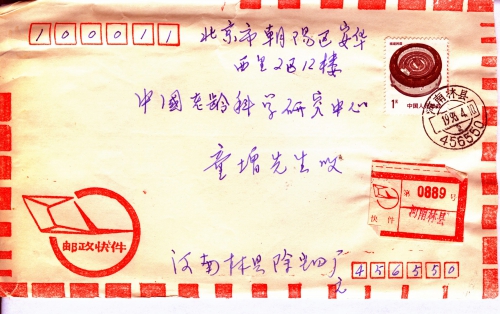 100011
北京市朝阳区安华
西里2区12楼
中国老龄科学研究中心
先生收
1元
中国人民邮政
河南林县
1996.4.10
456550
第 0889 号
快件
河南林县
邮政快件
河南林县除
456550